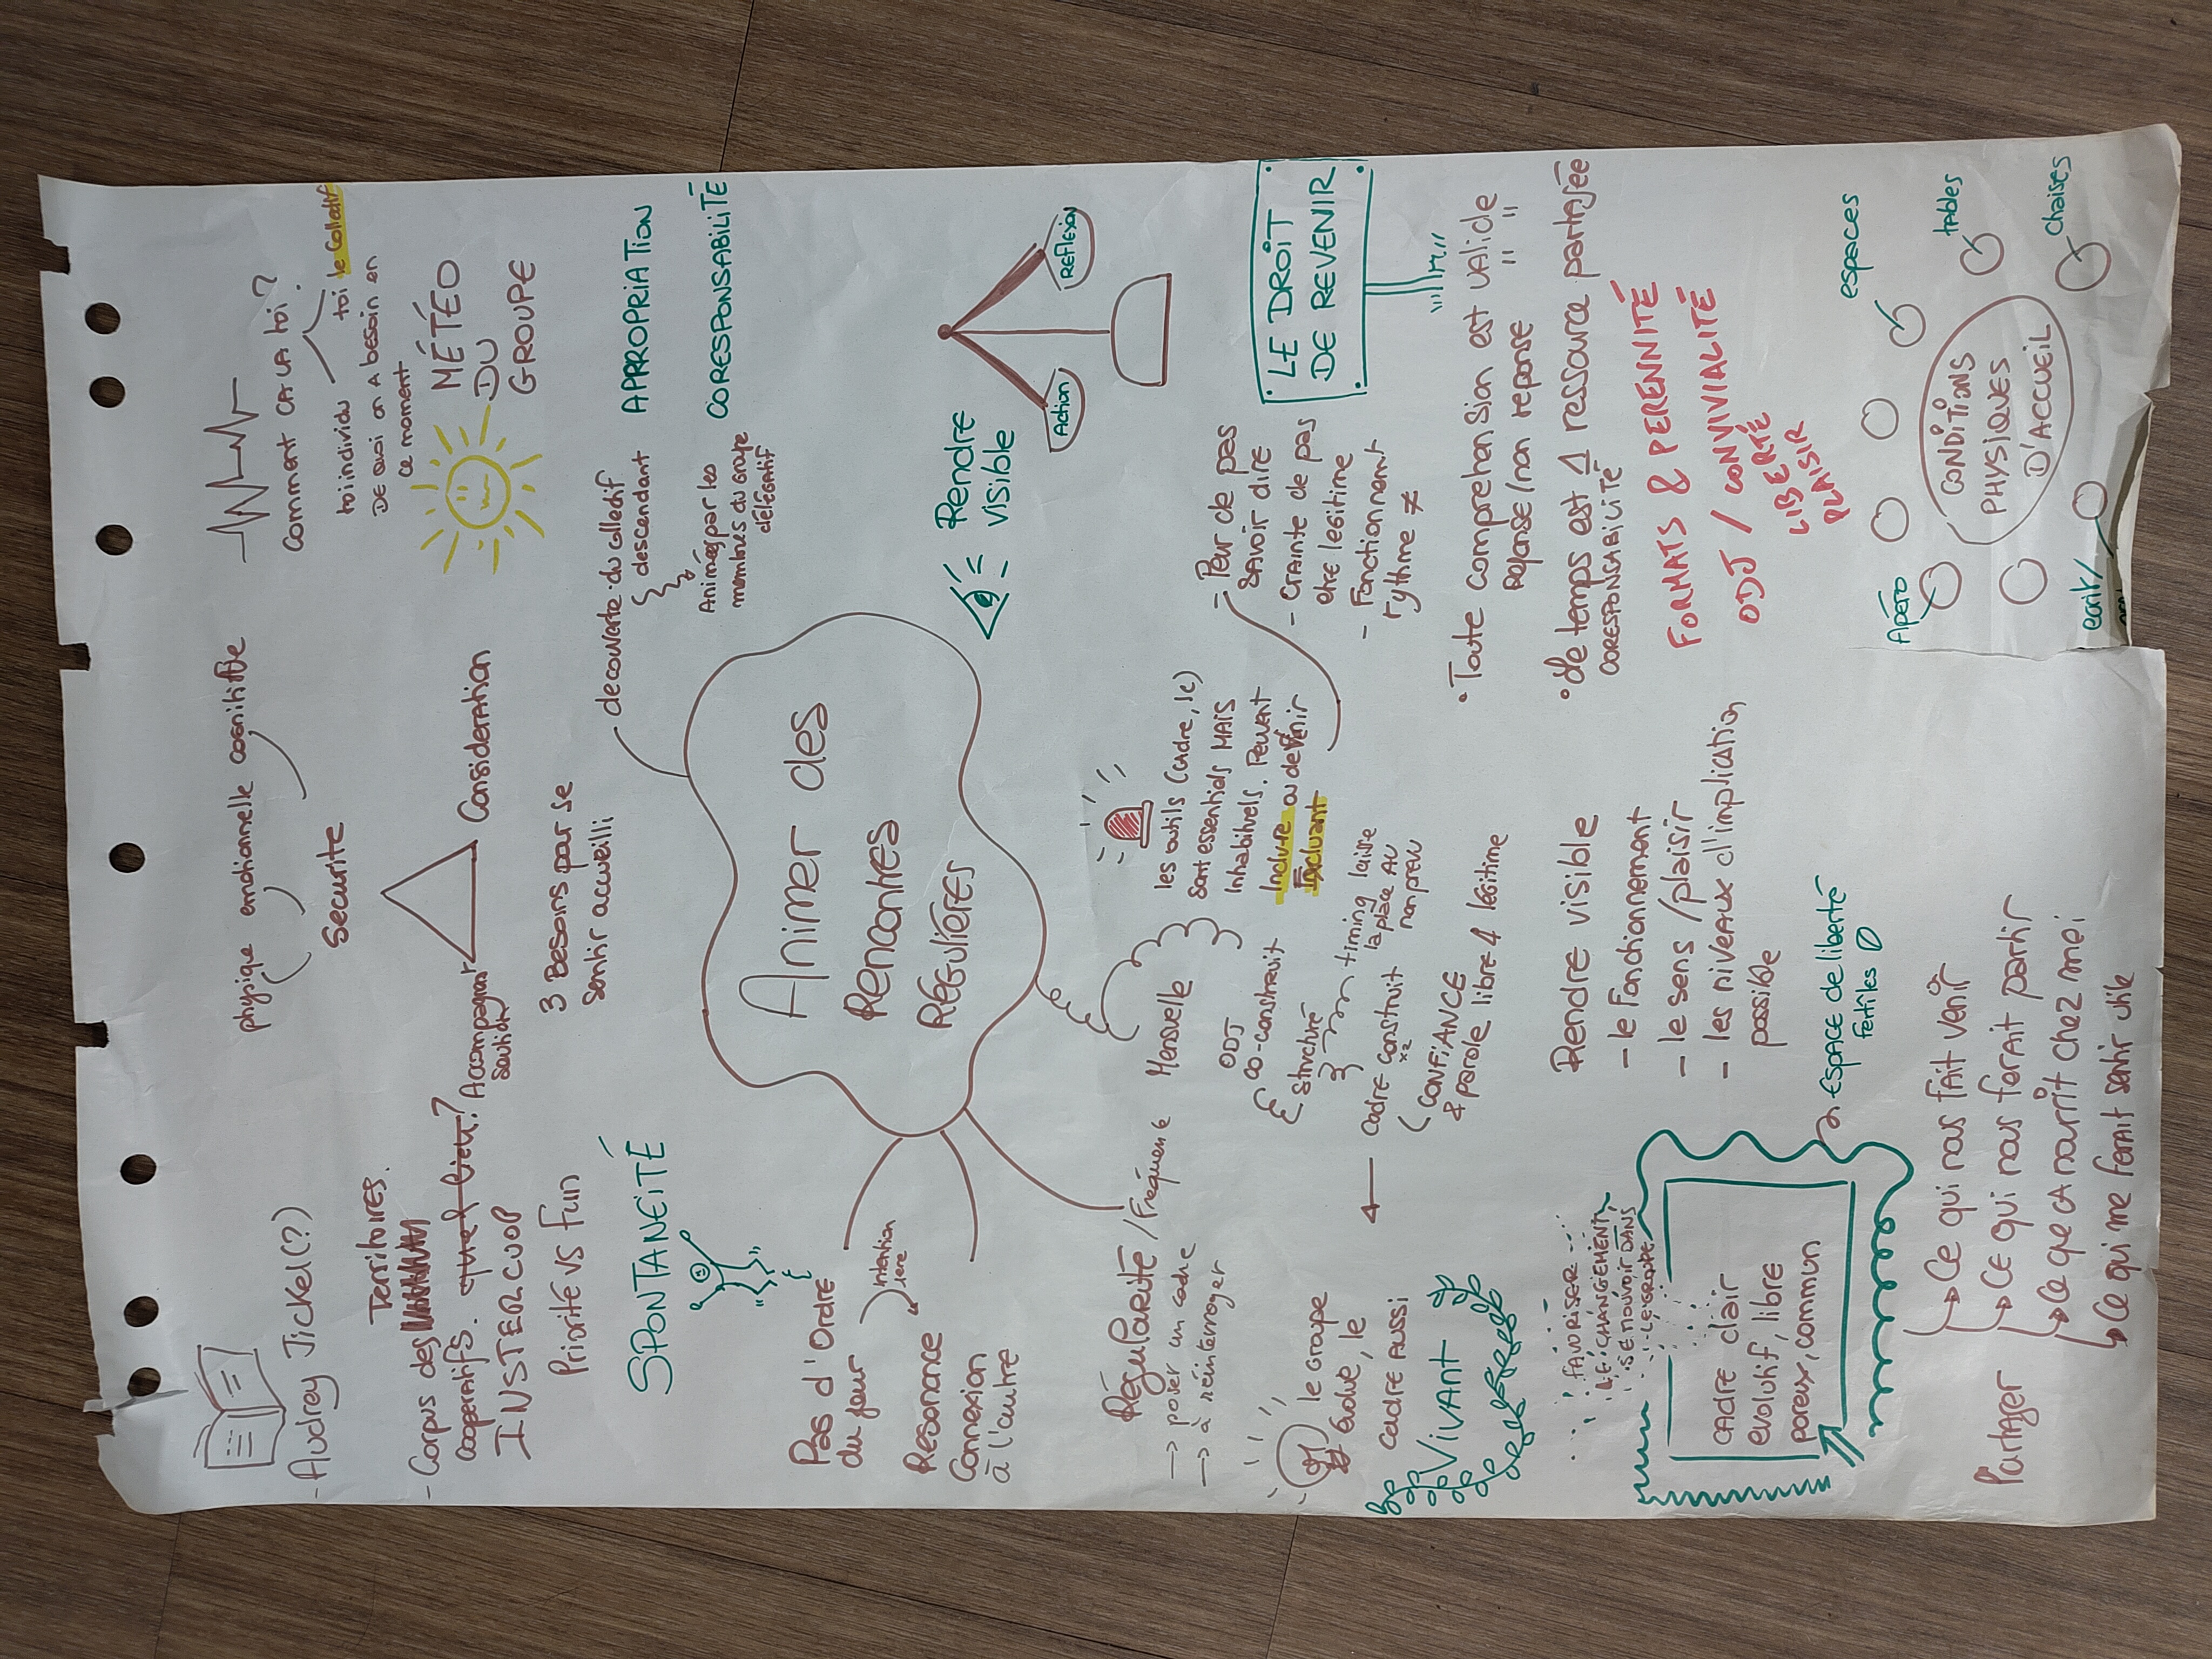 - Audrey Jickel(?)
Territoires.
- Corpus des
cooperatifs. quel lien?
INSTERCUOP
Priorité vs Fun
SPONTANEITÉ
physique emotionnelle cognitiffe
Securite
Accompagner
Soution
Consideration
3 Besoins pour se
sentir accueilli
comment CA VA toi?
toi individu toi le collectif
DE quoi on A besoin en
ce moment
MÉTÉO
DU
GROUPE
decouverte du collectif
descendant
Animés par les
membres du groupe
délégatif
APPROPRIATION
CORESPONSABILITÉ
Animer des
Rencontres
RÉGULIÈRES
Pas d'Ordre
du jour
Intention
1ere
Resonance
Connexion
à l'autre
Rendre
visible
Action
Réflexion
RéguLarité / Fréquence
→ poser un cadre
→ à réinterroger
Mensuelle
ODJ
co-construit
structuré
timing laisse
la place AU
non prévu
les outils (cadre, se)
sont essentiels MAIS
inhabituels. Peuvent
Inclure ou devenir
Excluant
- Peur de pas
savoir dire
- crainte de pas
etre legitime
- Fonctionnement
rythme ≠
LE DROIT
DE REVENIR
le Groupe
Évolue, le
cadre AUSSI
← cadre construit
x2
CONFIANCE
& parole libre & légitime
VIVANT
• Toute comprehension est valide
reponse/non reponse " "
• le temps est 1 ressource partagée
CORESPONSABILITÉ
FORMATS & PERENNITÉ
ODJ / CONVIVIALITÉ
LIBERTÉ
PLAISIR
Rendre visible
- le fonctionnement
- le sens / plaisir
- les niveaux d'implication
possible
FAVORISER
LE CHANGEMENT,
SE MOUVOIR DANS
LE GROUPE
CADRE clair
évolutif, libre
poreux, commun
ESPACE de liberté
fertiles
Partager
→ Ce qui nous fait venir
→ Ce qui nous ferait partir
→ Ce que CA nourrit chez moi
→ Ce qui me ferait sentir utile
CONDITIONS
PHYSIQUES
D'ACCUEIL
Apéro
espaces
tables
chaises
écrit/